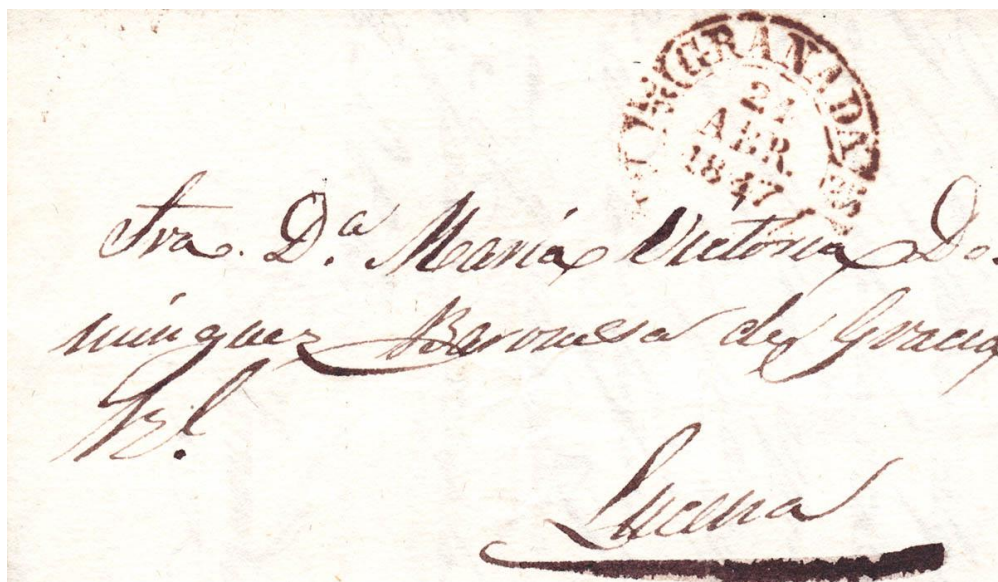 GRANADA
21
ABR.
1847
Sra. Dª María Victoria Do-
minguez Baronesa de Gracia
Rl.
Lucena